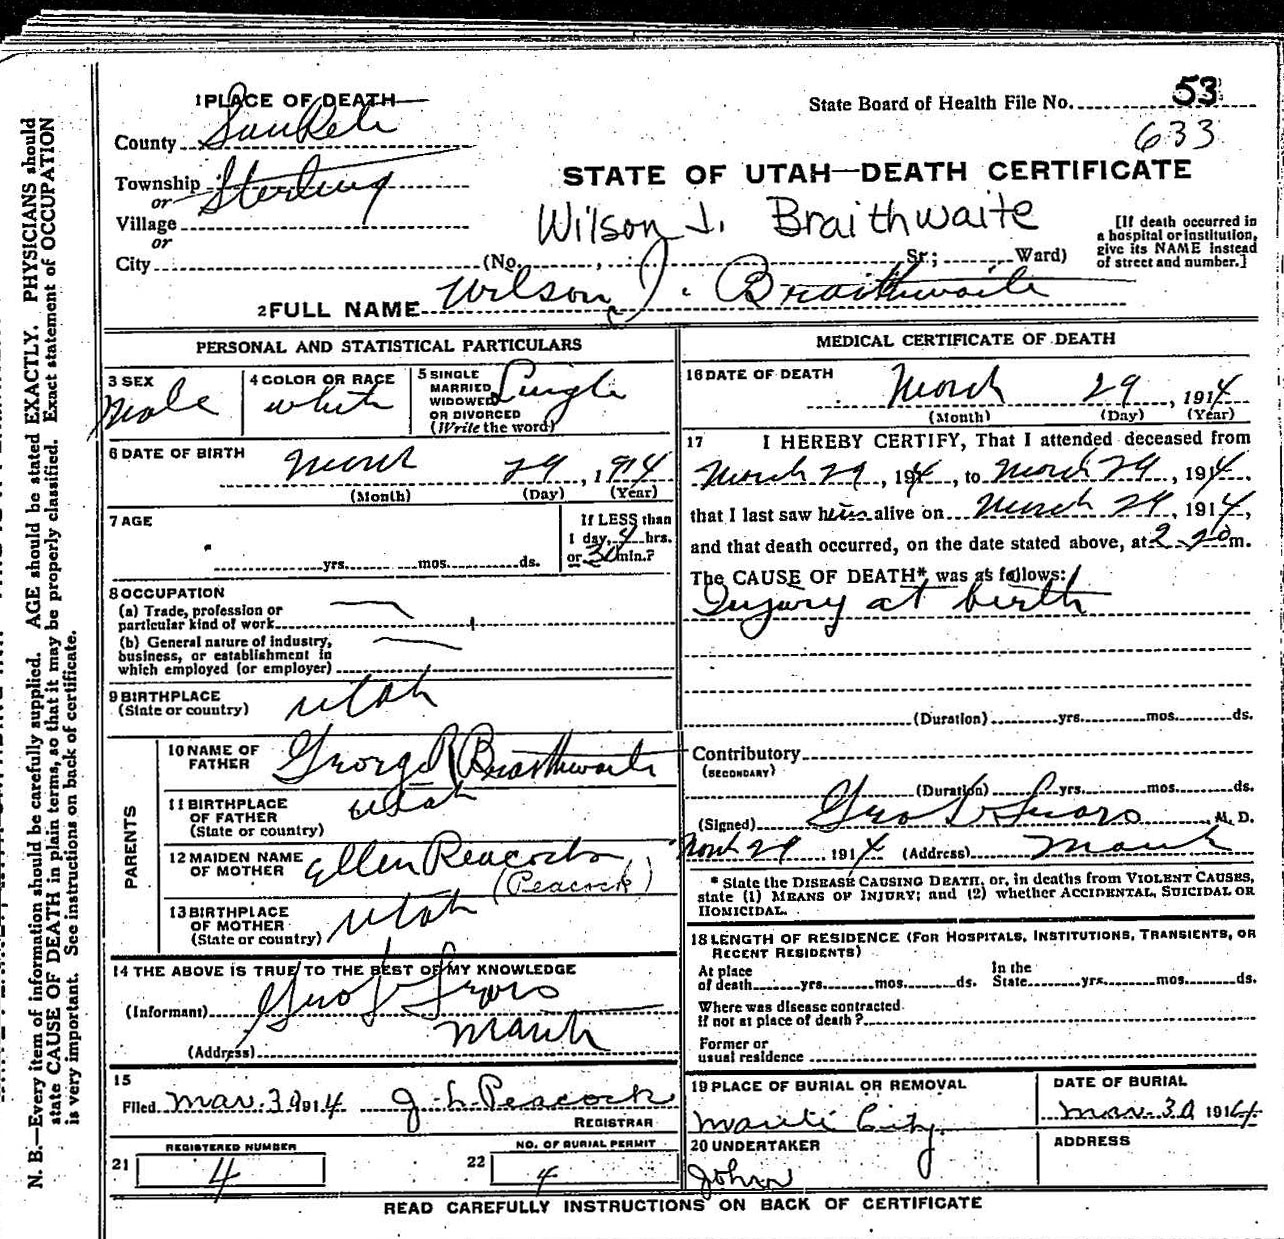 1 PLACE OF DEATH
State Board of Health File No. 53
633
County SanPete
Township Sterling
or
Village
or
STATE OF UTAH—DEATH CERTIFICATE
Wilson J. Braithwaite
[If death occurred in a hospital or institution, give its NAME instead of street and number.]
City (No. , Sr.; Ward)
2 FULL NAME Wilson J. Braithwaite
PERSONAL AND STATISTICAL PARTICULARS
3 SEX Male
4 COLOR OR RACE white
5 SINGLE MARRIED WIDOWED OR DIVORCED (Write the word) Single
6 DATE OF BIRTH March 29, 1914
(Month) (Day) (Year)
7 AGE
yrs. mos. ds.
If LESS than
1 day, 4 hrs.
or 30 min.?
8 OCCUPATION
(a) Trade, profession or
particular kind of work
(b) General nature of industry,
business, or establishment in
which employed (or employer)
9 BIRTHPLACE
(State or country) Utah
PARENTS
10 NAME OF FATHER George R Braithwaite
11 BIRTHPLACE OF FATHER (State or country) Utah
12 MAIDEN NAME OF MOTHER Ellen Peacock
(Peacock)
13 BIRTHPLACE OF MOTHER (State or country) Utah
14 THE ABOVE IS TRUE TO THE BEST OF MY KNOWLEDGE
(Informant) Geo
(Address) Manti
15
Filed Mar. 30 1914 J. L. Peacock
REGISTRAR
REGISTERED NUMBER
21 4
NO. OF BURIAL PERMIT
22 4
MEDICAL CERTIFICATE OF DEATH
16 DATE OF DEATH March 29, 1914
(Month) (Day) (Year)
17 I HEREBY CERTIFY, That I attended deceased from
March 29, 1914, to March 29, 1914,
that I last saw him alive on March 29, 1914,
and that death occurred, on the date stated above, at 2-20 m.
The CAUSE OF DEATH* was as follows:
Injury at birth
(Duration) yrs. mos. ds.
Contributory
(SECONDARY)
(Duration) yrs. mos. ds.
(Signed) Geo M. D.
March 29 1914 (Address) Manti
* State the DISEASE CAUSING DEATH, or, in deaths from VIOLENT CAUSES,
state (1) MEANS OF INJURY; and (2) whether ACCIDENTAL, SUICIDAL OR
HOMICIDAL.
18 LENGTH OF RESIDENCE (FOR HOSPITALS, INSTITUTIONS, TRANSIENTS, OR
RECENT RESIDENTS)
At place of death yrs. mos. ds. In the State yrs. mos. ds.
Where was disease contracted
if not at place of death?
Former or
usual residence
19 PLACE OF BURIAL OR REMOVAL
Manti City
DATE OF BURIAL
Mar. 30 1914
20 UNDERTAKER
John
ADDRESS
READ CAREFULLY INSTRUCTIONS ON BACK OF CERTIFICATE
N. B.—Every item of information should be carefully supplied. AGE should be stated EXACTLY. PHYSICIANS should
state CAUSE OF DEATH in plain terms, so that it may be properly classified. Exact statement of OCCUPATION
is very important. See instructions on back of certificate.